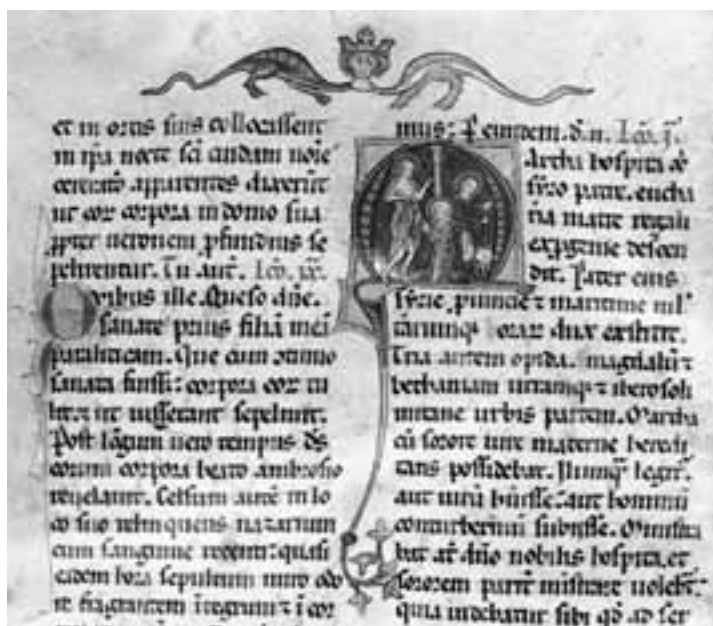 et in ortis suis collocassent
in ipa nocte sci cuidam noie
ceratio apparentes dixerūt
ut eoꝝ corpora in domo sua
ꝓpter neronem ꝓfundius se
pelirentur. Tu aut. Lco. ix.
Quibus ille. Queso dne.
sanate prius filiā meā
paraliticam. Que cum
sanata fuisset corpora eoꝝ tu
lit. et ut iusserant sepeliuit.
Post lōgum uero tempus ds
eorum corpora beato ambrosio
reuelauit. Celsum autē in lo
co suo relinquens nazarium
cum sanguine recenti: quasi
eadem hora sepultum miro odo
re fragrantem integrum
mus. eiusdem. d. n. Lco. j.
Martha hospita
syro patre. eucha
ria matre regali
ex descen
dit. Pater eius
syrie ꝓuincie et maritime
orar dux extitit.
Tria autem opida. magdalū et
bethaniam utramqꝫ et iherosoli
mitane urbis partem. Martha
cū sorore iure materne heredi
tans possidebat. Nunqꝫ legit
aut uirū hūisse: aut hominū
contubernium subisse. Ministra
bat at dno nobilis hospita, et
sororem parit mistrare uolebat
quia uidebatur sibi qd ad ser